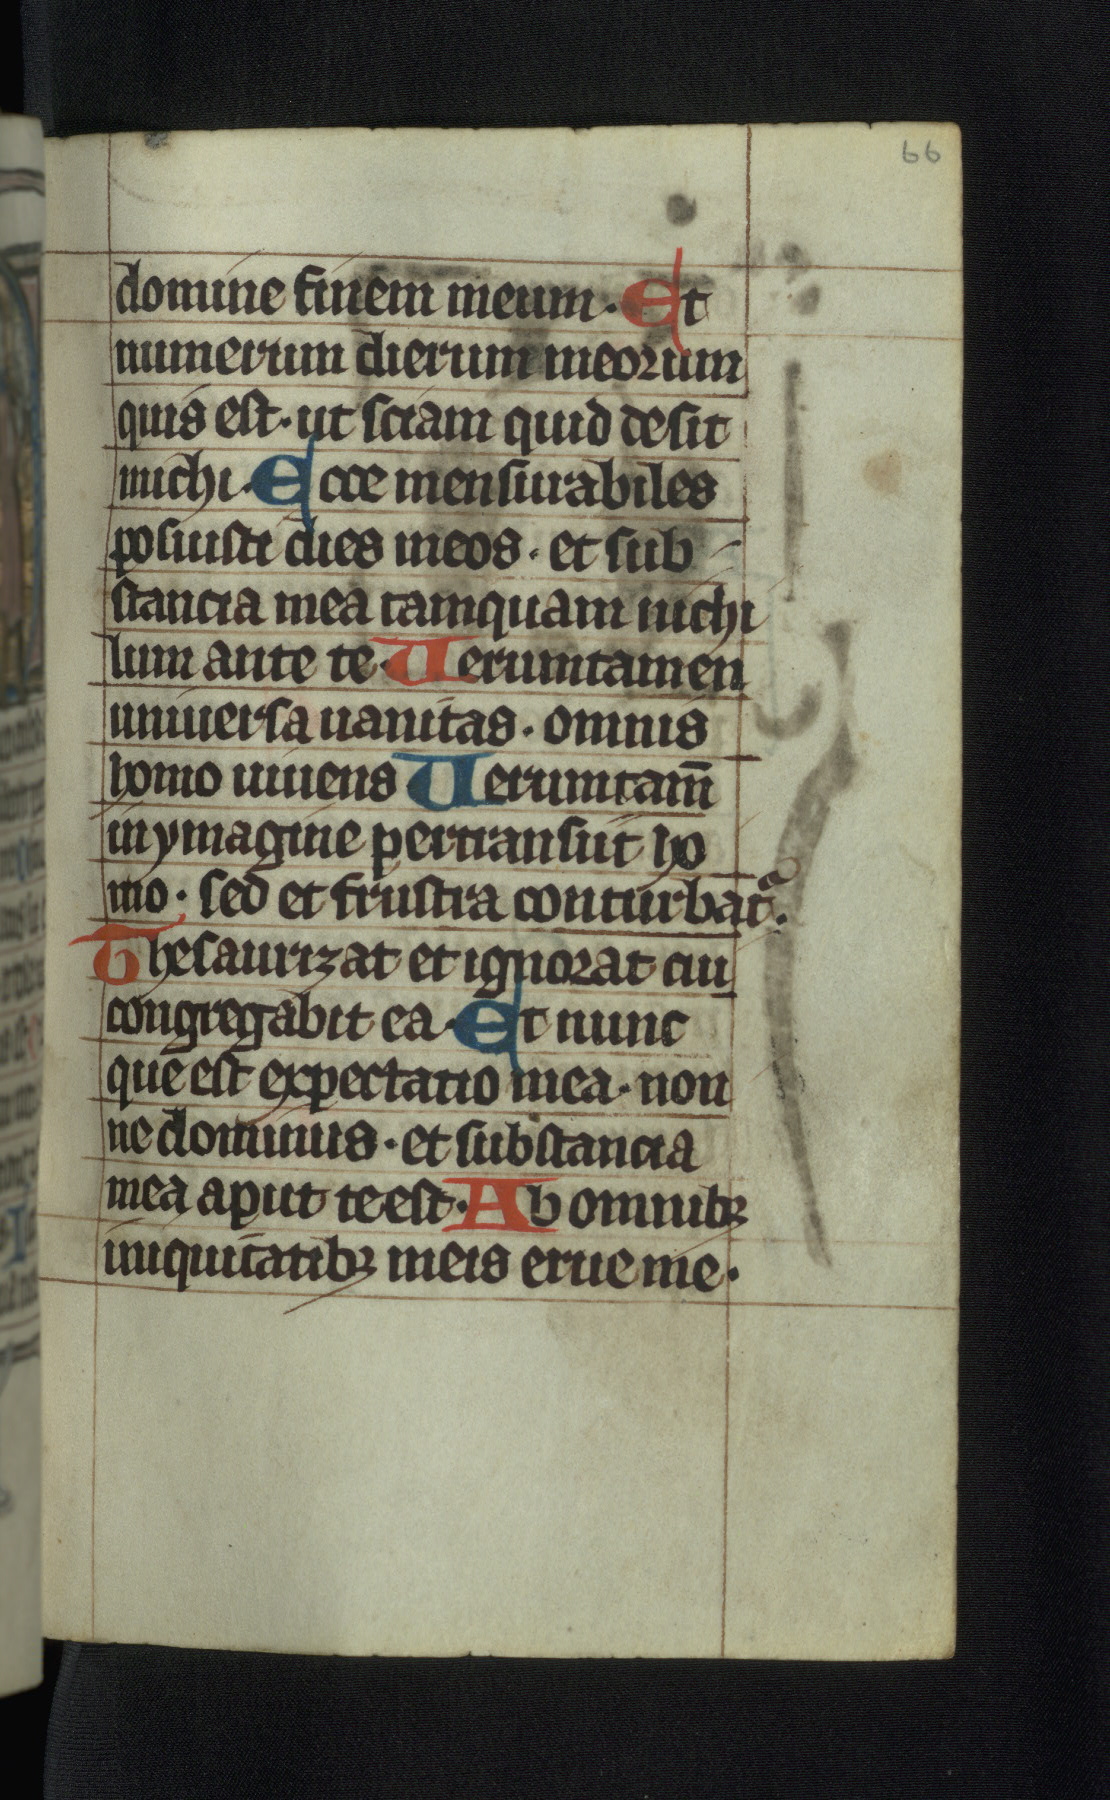 66
domine finem meum. Et
numerum dierum meorum
quis est. ut sciam quid desit
michi. Ecce mensurabiles
posuisti dies meos. et sub
stancia mea tamquam nichi
lum ante te. Uerumtamen
uniuersa uanitas. omnis
homo uiuens Uerumtam̄
in ymagine pertransiit ho
mo. sed et frustra conturbatᷓ.
Thesaurizat et ignorat cui
congregabit ea. Et nunc
que est expectatio mea. non
ne dominus. et substancia
mea aput te est. Ab omnibꝫ
iniquitatibꝫ meis erue me.